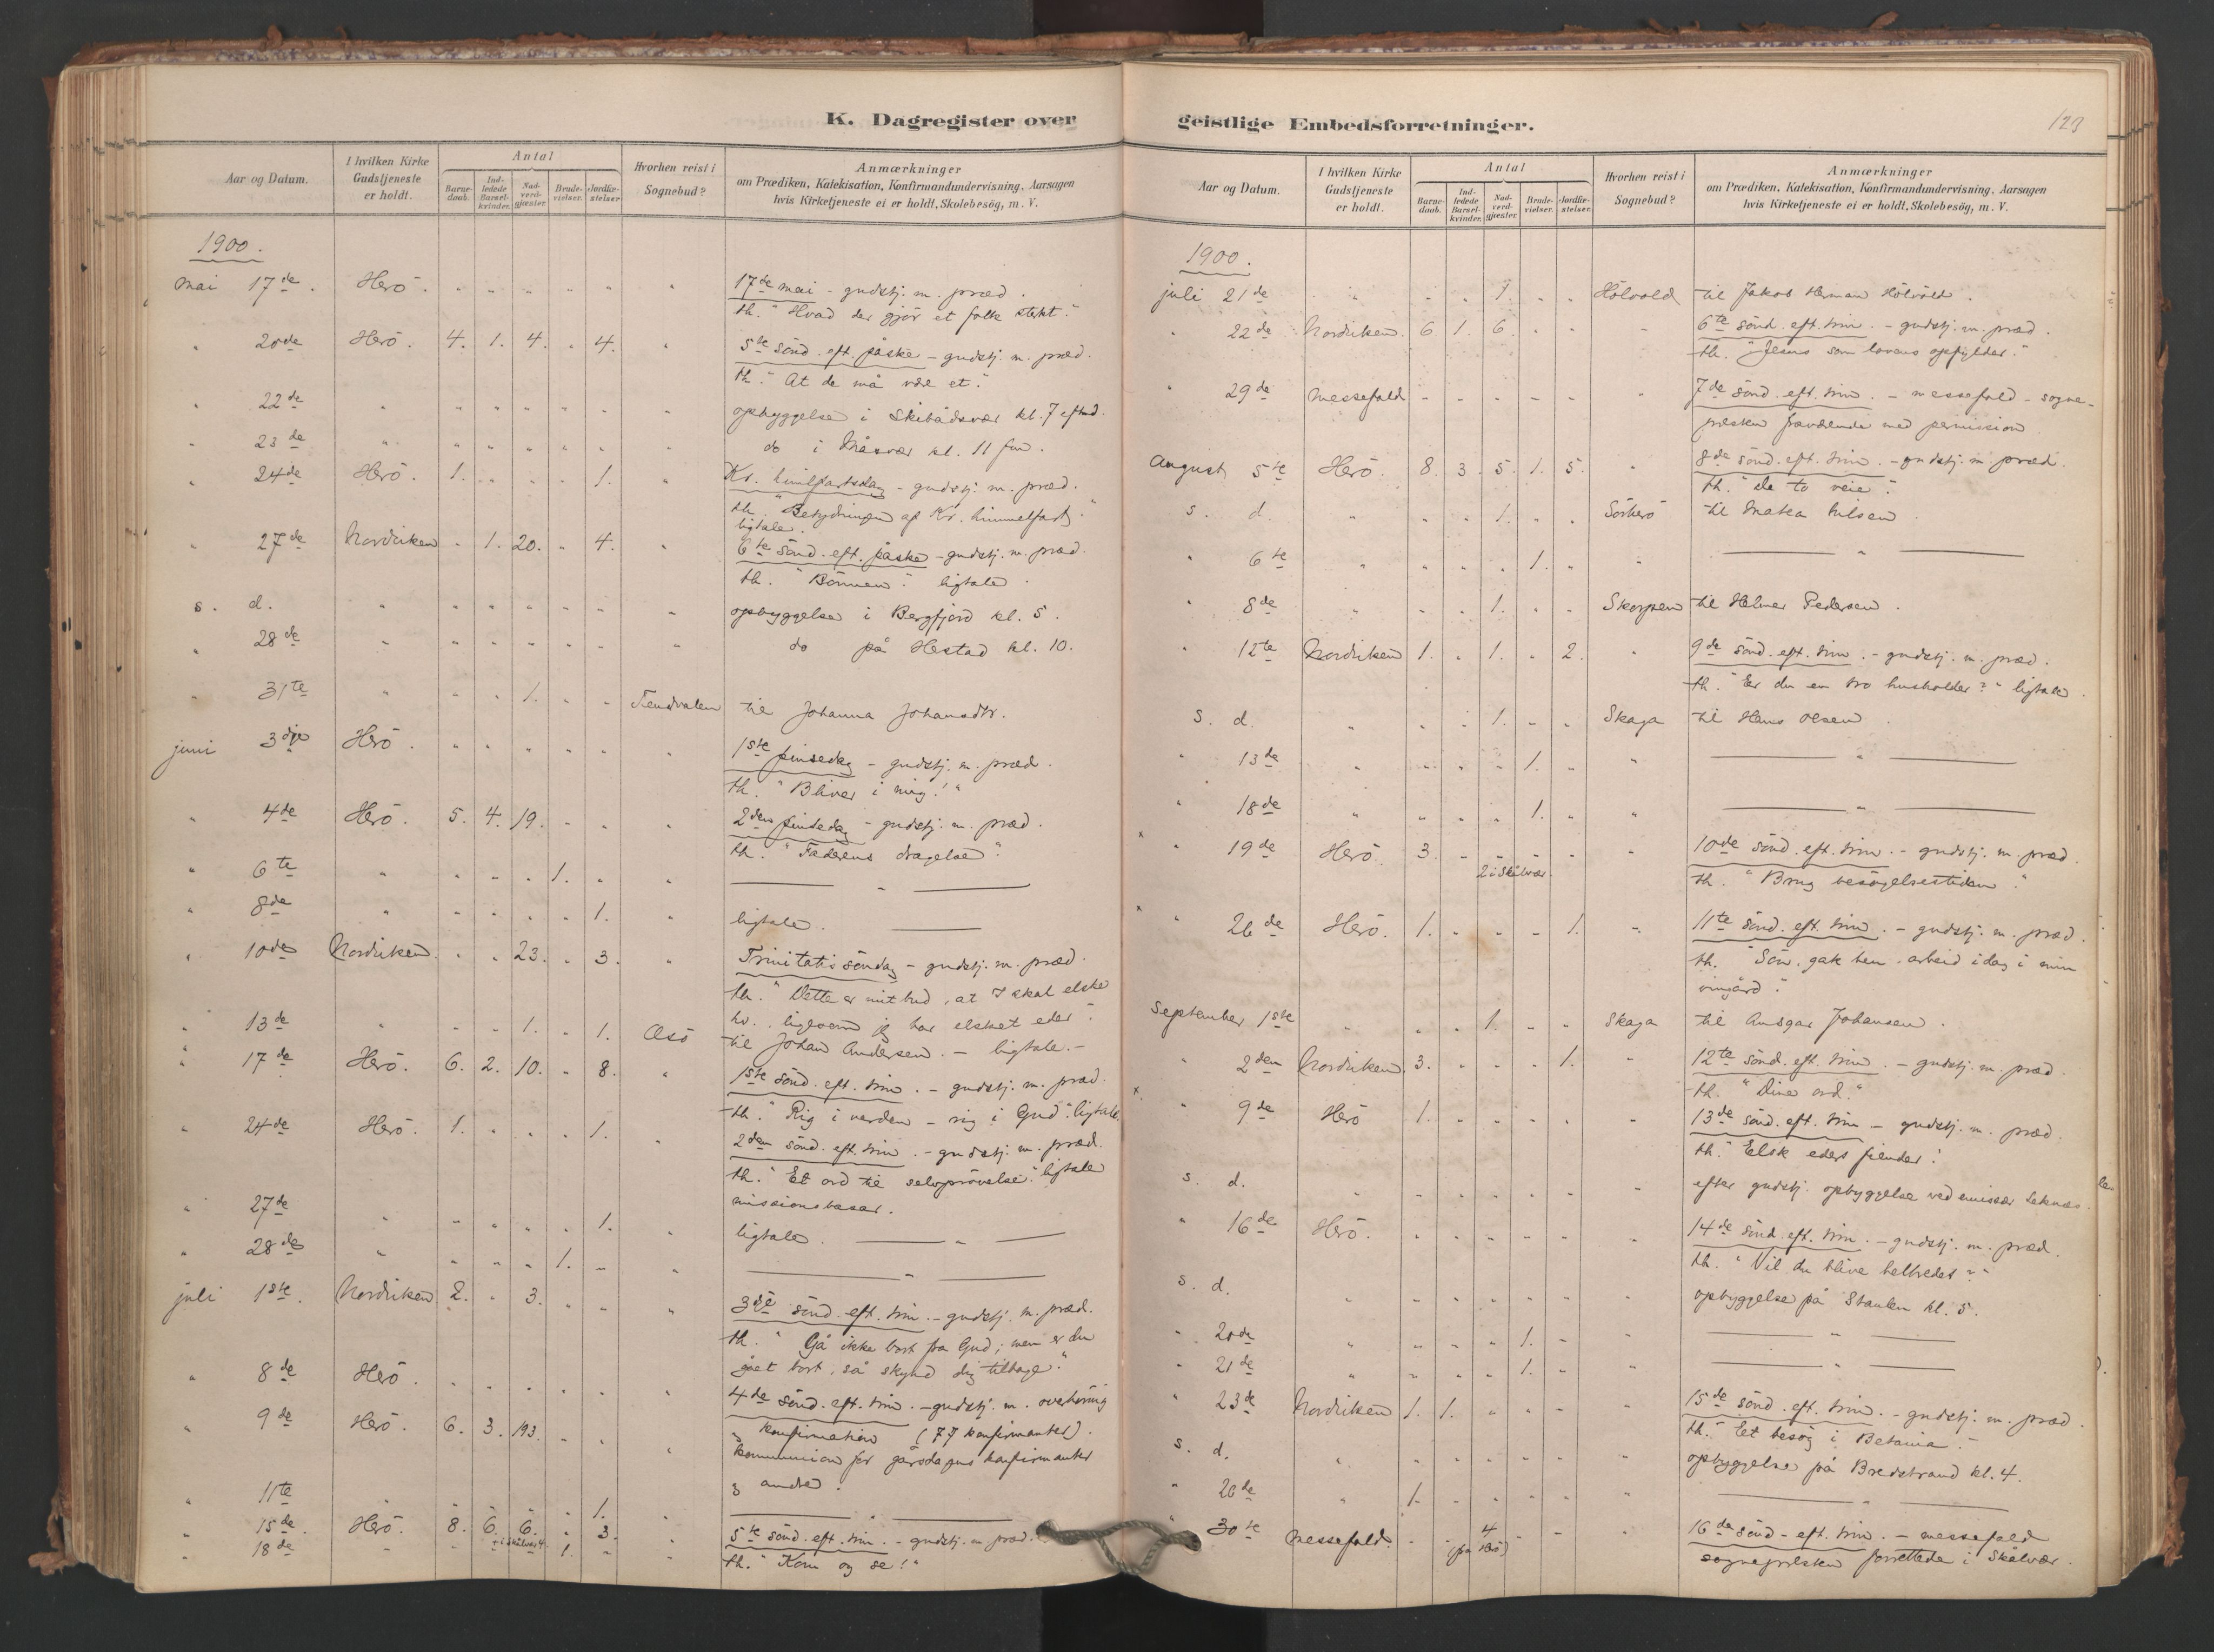 K. Dagregister over
Aar og Datum.
I hvilken Kirke Gudstjeneste er holdt.
Antal
Barne-daab.
Ind-ledede Barsel-kvinder.
Nad-verd-gjæster.
Brude-vielser.
Jordfæ-stelser.
Hvorhen reist i Sognebud?
Anmærkninger
om Prædiken, Katekisation, Konfirmandundervisning, Aarsagen
hvis Kirketjeneste ei er holdt, Skolebesög, m. V.
1900.
Mai 17de. Herö. " " " " " " 17de mai - gudstj. m. præd.
th. "Hvad der gjör et folk stærkt."
" 20de Herö. 4. 1. 4. " 4. " 5te sönd. eft. påske - gudstj. m. præd.
th. "At de må være et."
" 22de " " " " " " " opbyggelse i Skibådsvær kl. 7 eftmd.
" 23de " " " " " " " do i Måsvær kl. 11 fm.
" 24de Herö. 1. " " " 1. " Kr. himlfartsdag - gudstj. m. præd.
th. "Betydningen af Kr. himmelfart."
ligtale.
" 27de Nordviken " 1. 20. " 4. " 6te sönd. eft. påske - gudstj. m. præd.
th. "Bönnen". ligtale.
s. d. " " " " " " " opbyggelse i Bergfjord kl. 5.
" 28de " " " " " " " do på Hestad kl. 10.
" 31te " " " 1. " " Tendvalen til Johanna Johansdtr.
juni 3dje Herö. " " " " " " 1ste pinsedag - gudstj. m. præd.
th. "Bliver i mig!"
" 4de Herö. 5. 4. 19. " " " 2den pinsedag - gudstj. m. præd.
th. "Faderens dragelse".
" 6te " " " " 1. " " "
" 8de " " " " " 1. " ligtale.
" 10de Nordviken. " " 23. " 3. " Trinitatis söndag - gudstj. m. præd.
th. "Dette er mit bud, at I skal elske
hv., ligesom jeg har elsket eder".
" 13de " " " 1. " 1. Æsö til Johan Andersen. - ligtale. -
" 17de Herö. 6. 2. 10. " 8. " 1ste sönd. eft. trin. - gudstj. m. præd.
th. "Rig i verden - rig i Gud". ligtale.
" 24de Herö. 1. " " " 1. " 2den sönd. eft. trin. - gudstj. m. præd.
th. "Et ord til selvprövelse." ligtale
missionsbasar.
" 27de " " " " " 1. " ligtale. "
" 28de " " " " 1. " " "
juli 1ste. Nordviken 2. " 3. " " " 3dje sönd. eft. trin. - gudstj. m. præd.
th. "Gå ikke bort fra Gud; men er du
gået bort, så skynd dig tilbage."
" 8de Herö. " " " " " " 4de sönd. eft. trin. - gudstj. m. overhöring
konfirmation (77 konfirmanter).
" 9de Herö. 6. 3. 193. " " " kommunion for gårsdagens konfirmanter
og andre.
" 11te " " " " " 1. " "
" 15de. Herö. 8. 6. 6. " 3. " 5te sönd. eft. trin. - gudstj. m. præd.
+ i skålvær 4.
" 18de " " " " 1. " " th. "Kom og se!"
geistlige Embedsforretninger.
123
Aar og Datum.
I hvilken Kirke Gudstjeneste er holdt.
Antal
Barne-daab.
Ind-ledede Barsel-kvinder.
Nad-verd-gjæster.
Brude-vielser.
Jordfæ-stelser.
Hvorhen reist i Sognebud?
Anmærkninger
om Prædiken, Katekisation, Konfirmandundervisning, Aarsagen
hvis Kirketjeneste ei er holdt, Skolebesög, m. V.
1900.
juli 21de " " " 1. " " Hölvold til Jakob Herman Hölvold.
" 22de Nordviken. 6. 1. 6. " " " 6te sönd. eft. trin. - gudstj. m. præd.
th. "Jesus som lovens opfylder."
" 29de messefald - - - - - " 7de sönd. eft. trin. - messefald - sogne-
presten fraværende med permission.
August 5te Herö. 8. 3. 5. 1. 5. " 8de sönd. eft. trin. - gudstj. m. præd.
th. "De to veie".
s. d. " " " 1. " " Sörherö til Matea Nilsen.
" 6te " " " " 1. " " "
" 8de " " " 1. " " Skorpen til Helmer Pedersen.
" 12te Nordviken 1. " 1. " 2. " 9de sönd. eft. trin. - gudstj. m. præd.
th. "Er du en tro husholder?" ligtale.
s. d. " " " 1. " " Skaga til Hans Olsen.
" 13de " " " " 1. " " "
" 18de " " " " 1. " " "
x " 19de Herö. 3. " " " " " 10de sönd. eft. trin. - gudstj. m. præd.
2 i Skålvær
th. "Brug besögelsestiden."
x " 26de Herö. 1. " " " 1. " 11te sönd. eft. trin. - gudstj. m. præd.
th. "Sön, gak hen, arbeid idag i min
vingård".
September 1ste " " " 1. " " Skaga til Ansgar Johansen.
" 2den Nordviken. 3. " " " 1. " 12te sönd. eft. trin. - gudstj. m. præd.
th. "Dine ord."
x. " 9de Herö 1. " " " " " 13de sönd. eft. trin - gudstj. m. præd.
th. "Elsk eders fiender!
s. d. " " " " " " " efter gudstj. opbyggelse ved emissær Leknes.
" 16de Herö. " " " " " " 14de sönd. eft. trin. - gudstj. m. præd.
th. "Vil du blive helbredet?"
s. d. " " " " " " " opbyggelse på Staulen kl. 5.
" 20de " " " " 1. " " "
" 21de " " " " 1. " " "
" 23de Nordviken 1. 1. " " " " 15de sönd. eft. trin. - gudstj. m. præd.
th. "Et besög i Betania".
s. d. " " " " " " " opbyggelse på Bredstrand kl. 4.
" 26de " 1. " " " " " "
" 30te messefald. - - 4 - - 16de sönd. eft. trin. - messefald
(fra Herö)
sognepresten forrettede i Skålvær.